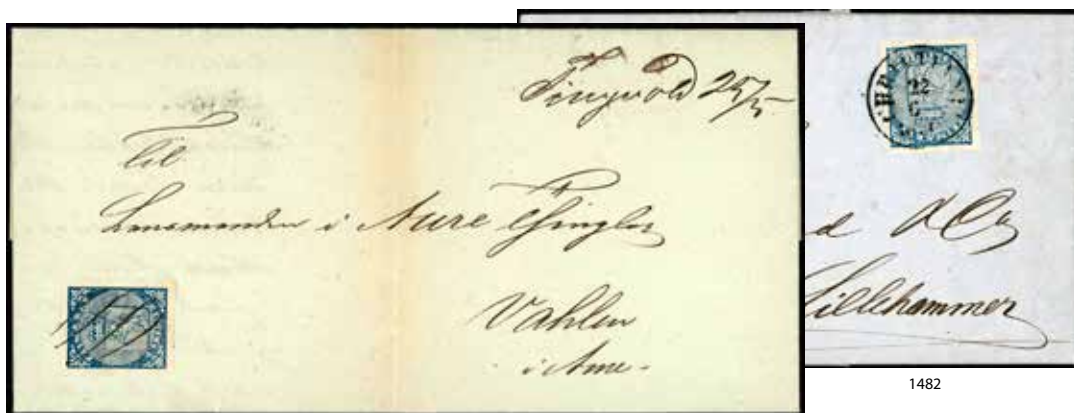 Tingvold 25/5
Til
Lensmanden i Aure Thinglag
Vahlen
i Aure.
CHRISTIANIA
22
d & Co
Lillehammer
1482